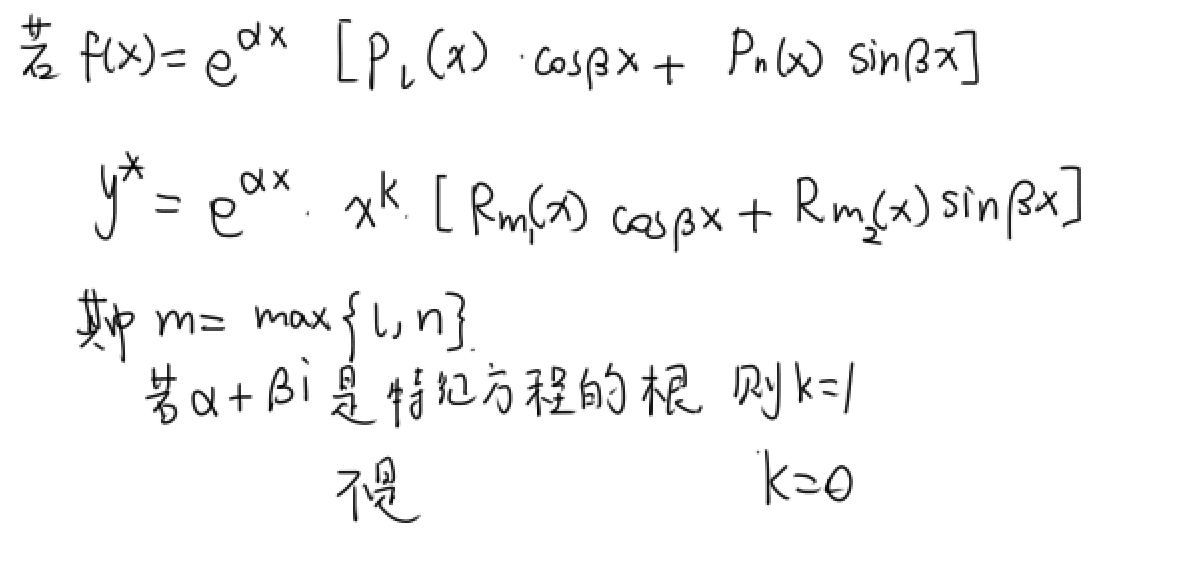 若 f(x)= e^{αx} [P_l(x)·cosβx + P_n(x) sinβx]
y* = e^{αx}·x^k·[R_{m_1}(x) cosβx + R_{m_2}(x) sinβx]
其中 m= max{l,n}.
若α+βi 是特征方程的根 则k=1
不是 k=0